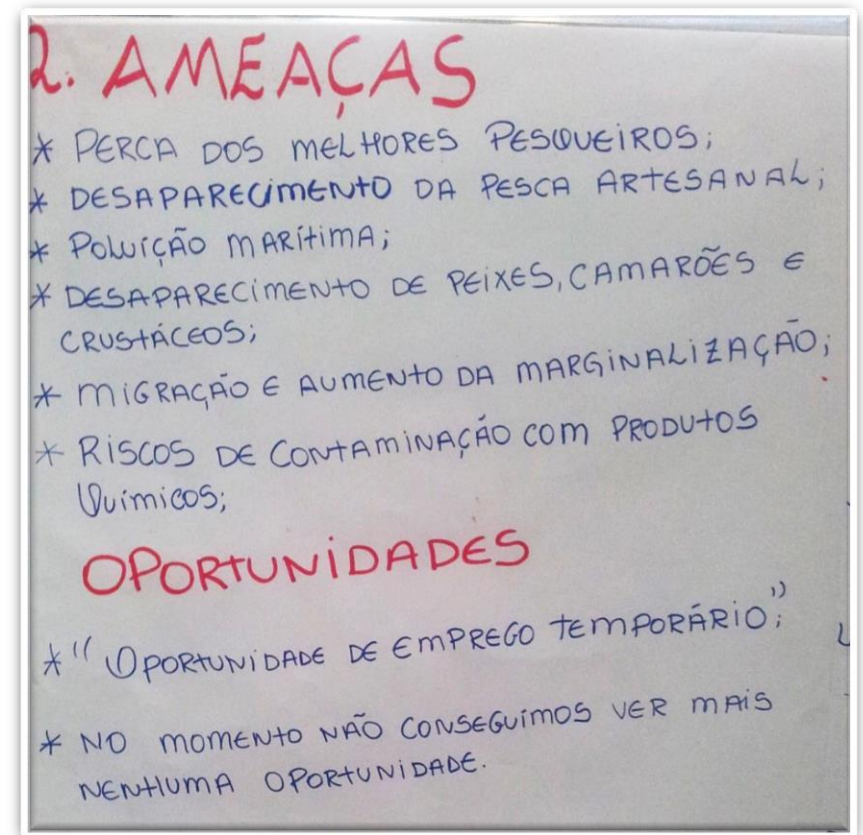 2. AMEAÇAS
* PERCA DOS MELHORES PESQUEIROS;
* DESAPARECIMENTO DA PESCA ARTESANAL;
* POLUIÇÃO MARÍTIMA;
* DESAPARECIMENTO DE PEIXES, CAMARÕES E
CRUSTÁCEOS;
* MIGRAÇÃO E AUMENTO DA MARGINALIZAÇÃO;
* RISCOS DE CONTAMINAÇÃO COM PRODUTOS
QUÍMICOS;
OPORTUNIDADES
* "OPORTUNIDADE DE EMPREGO TEMPORÁRIO";
* NO MOMENTO NÃO CONSEGUIMOS VER MAIS
NENHUMA OPORTUNIDADE.